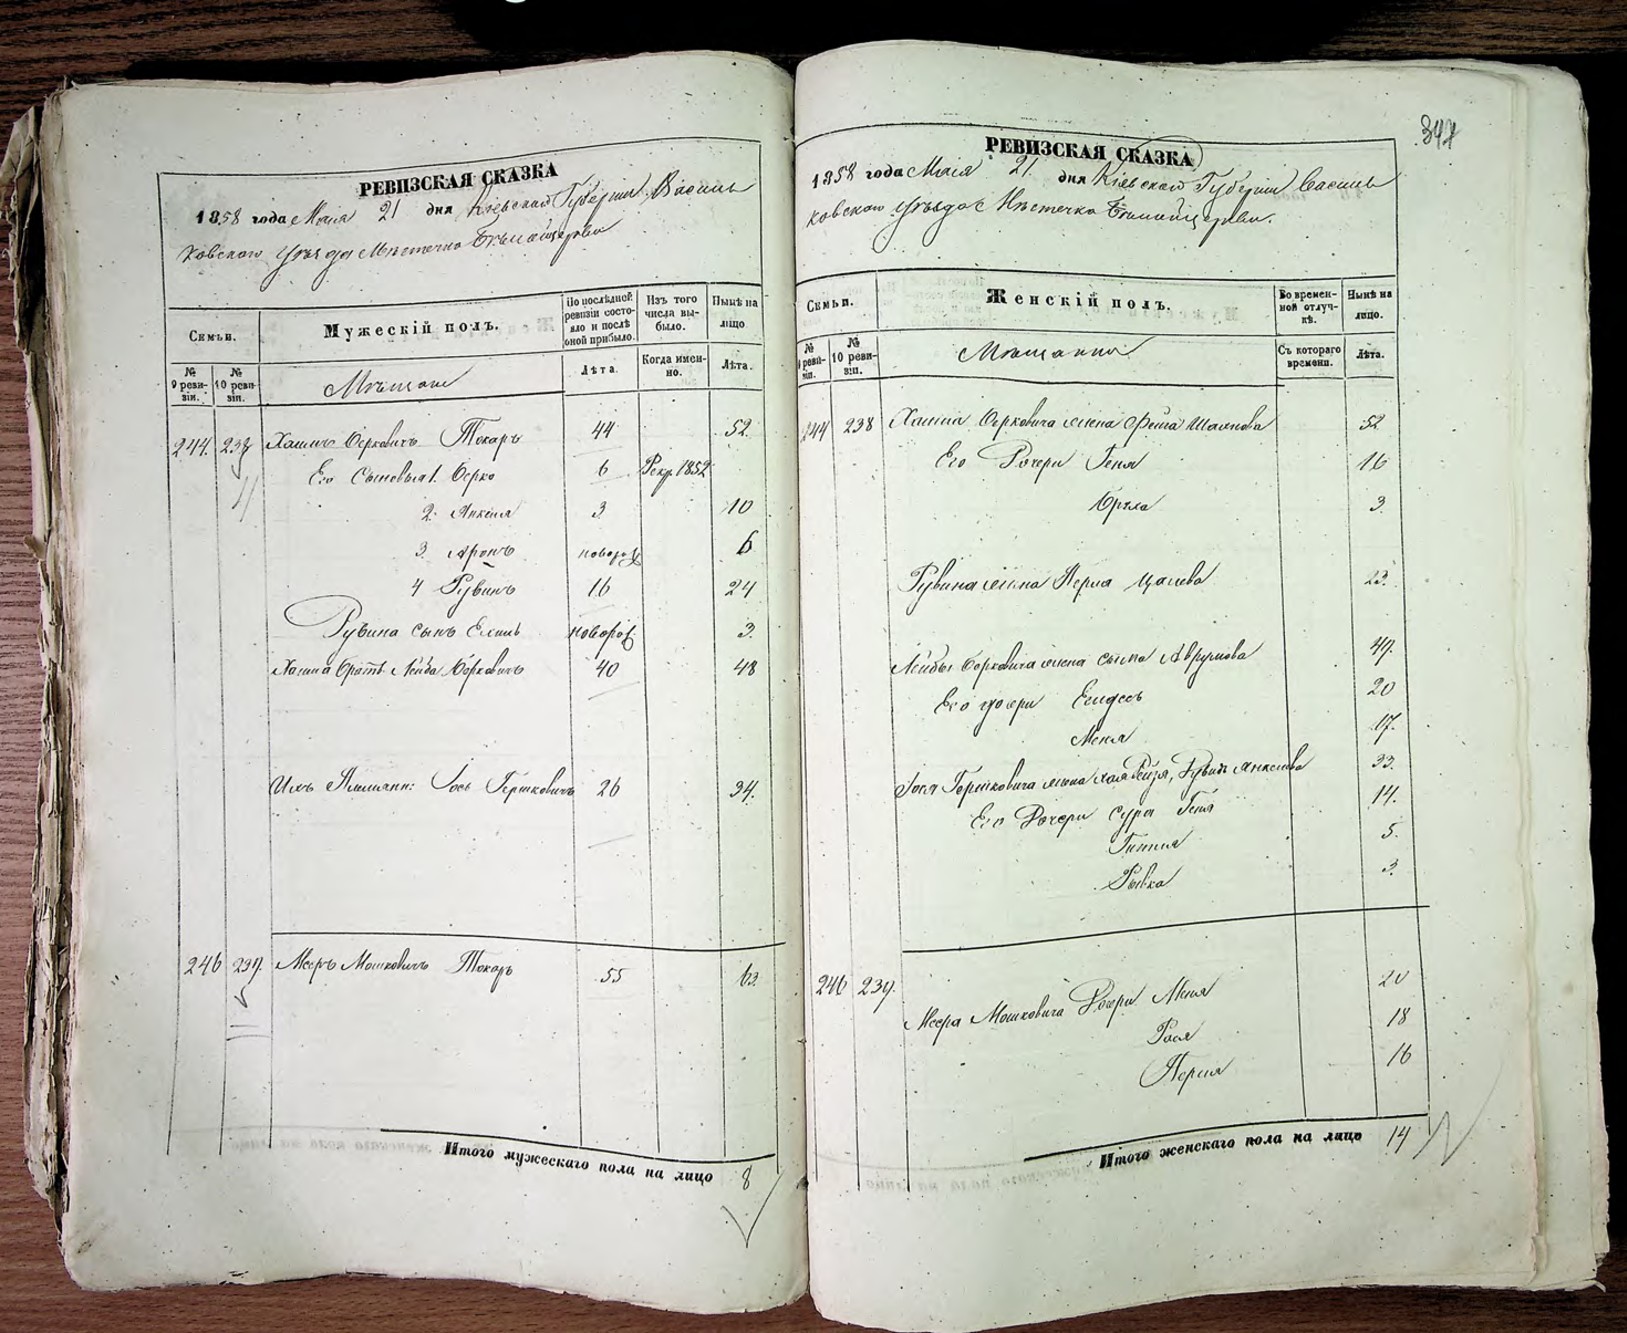 РЕВИЗСКАЯ СКАЗКА
1858 года Маія 21 дня Кіевской Губерніи, Василь
ковского уѣзда Мѣстечка Бѣлойцеркви
Семьи.
Мужескій полъ.
По послѣдней ревизіи состояло и послѣ оной прибыло.
Изъ того числа выбыло.
Нынѣ на лицо
№ 9 ревизіи.
№ 10 ревизіи.
Мѣщане
Лѣта.
Когда именно.
Лѣта.
244. 238 Хаимъ Берковичъ Токарь 44 52
Его Сыновья 1. Берко 6 Рекр. 1852
2. Янкель 3 10
3. Аронъ новорож 6
4 Рувинъ 16 24
Рувина сынъ новорож. 3.
Хаима братъ Лейба Берковичъ 40 48
Ихъ Племянн: Іось Гершковичъ 26 34.
246 239. Мееръ Мошковичъ Токарь 55 63.
Итого мужескаго пола на лицо 8
347
РЕВИЗСКАЯ СКАЗКА
1858 года Маія 21 дня Кіевской Губерніи Василь
ковского уѣзда Мѣстечка Бѣлойцеркви.
Семьи.
Женскій полъ.
Во временной отлучкѣ.
Нынѣ на лицо.
№ 9 ревизіи.
№ 10 ревизіи.
Мѣщанки
Съ котораго времени.
Лѣта.
244 238 Хаима Берковича жена Фейга 52
Его Дочери Геня 16
3.
Рувина жена Перла 23.
Лейбы Берковича жена Аврумова 47.
Его дочери 20
Меня 17.
Іося Гершковича жена Хая Рейзя, Янкелева 33.
Его Дочери Сура Геня 14.
Гитля 5.
Рывка 3.
246 239. Меера Мошковича Дочери Меня 20
Рося 18
Перля 16
Итого женскаго пола на лицо 14